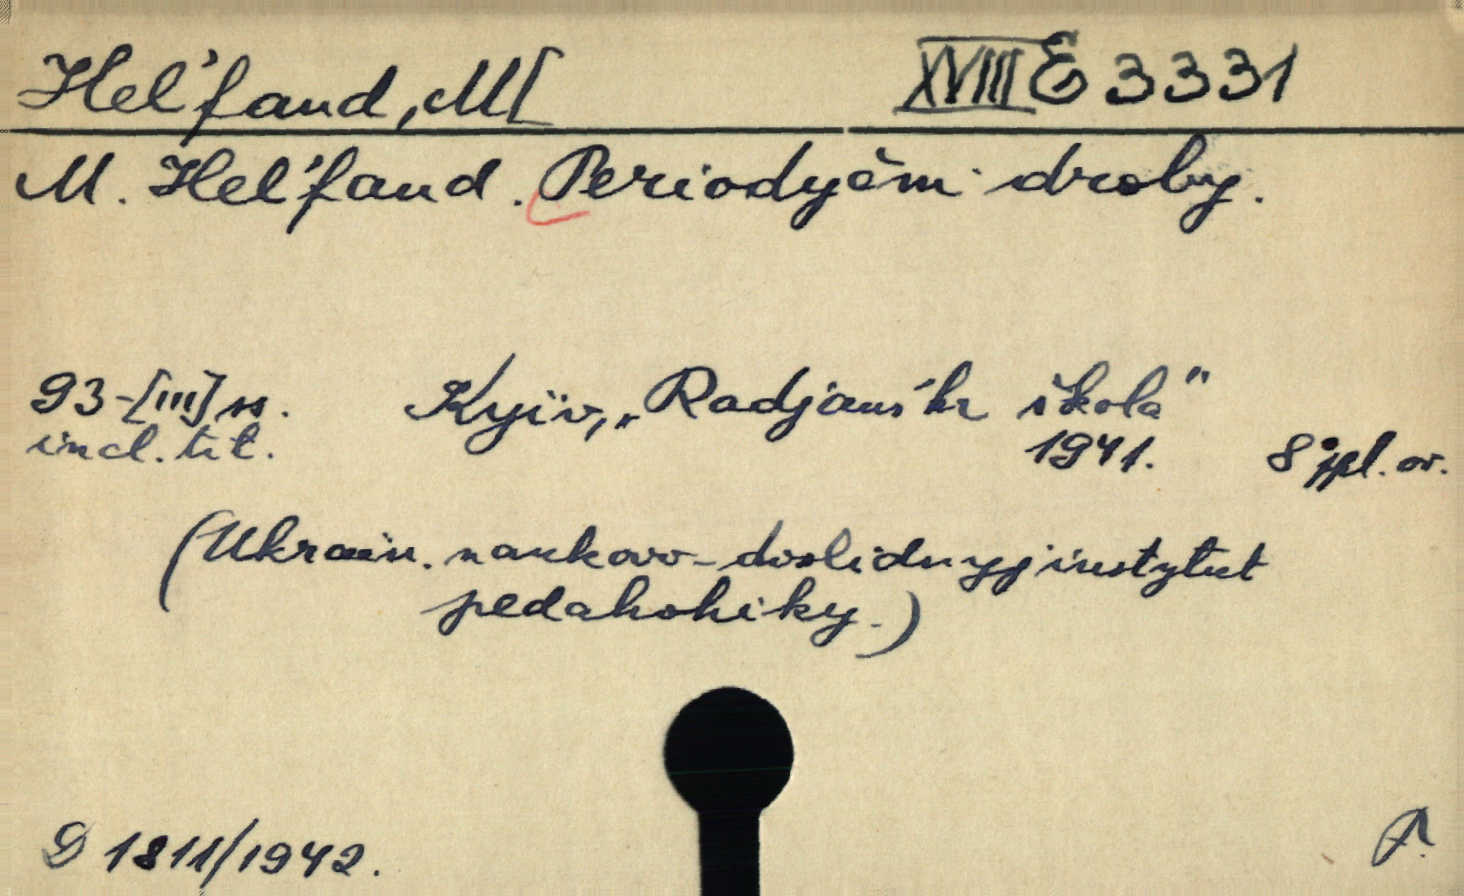 Hel'fand, M[ XVIII E 3331
M. Hel'fand. Periodyčni droby.
93-[III] ss. Kyïv, „Radjans'ka škola"
incl. tit. 1941. 8° pl. or.
(Ukraïn. naukovo-doslidnyj instytut
pedahohiky.)
D 1811/1942.